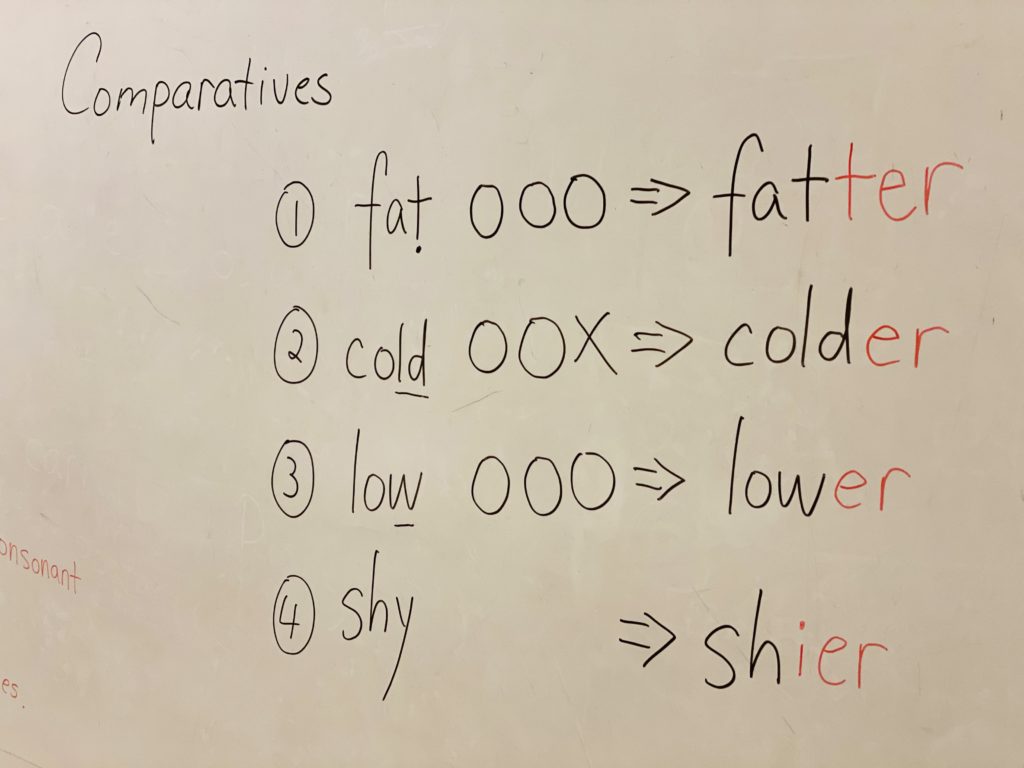 Comparatives
① fat OOO ⇒ fatter
② cold OOX ⇒ colder
③ low OOO ⇒ lower
onsonant
④ shy ⇒ shier
es.